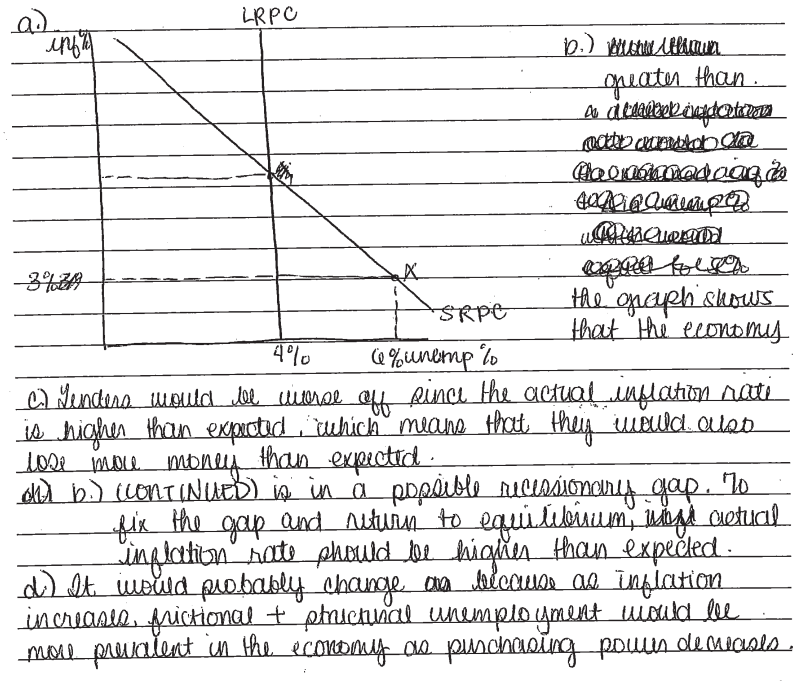 a.)
LRPC
inf%
3%
X
SRPC
4%
6%
unemp %
b.)
greater than.
the graph shows
that the economy
c.) Lenders would be worse off since the actual inflation rate
is higher than expected, which means that they would also
lose more money than expected.
b.) (CONTINUED) is in a possible recessionary gap. To
fix the gap and return to equilibrium, actual
inflation rate should be higher than expected.
d.) It would probably change because as inflation
increases, frictional + structural unemployment would be
more prevalent in the economy as purchasing power decreases.